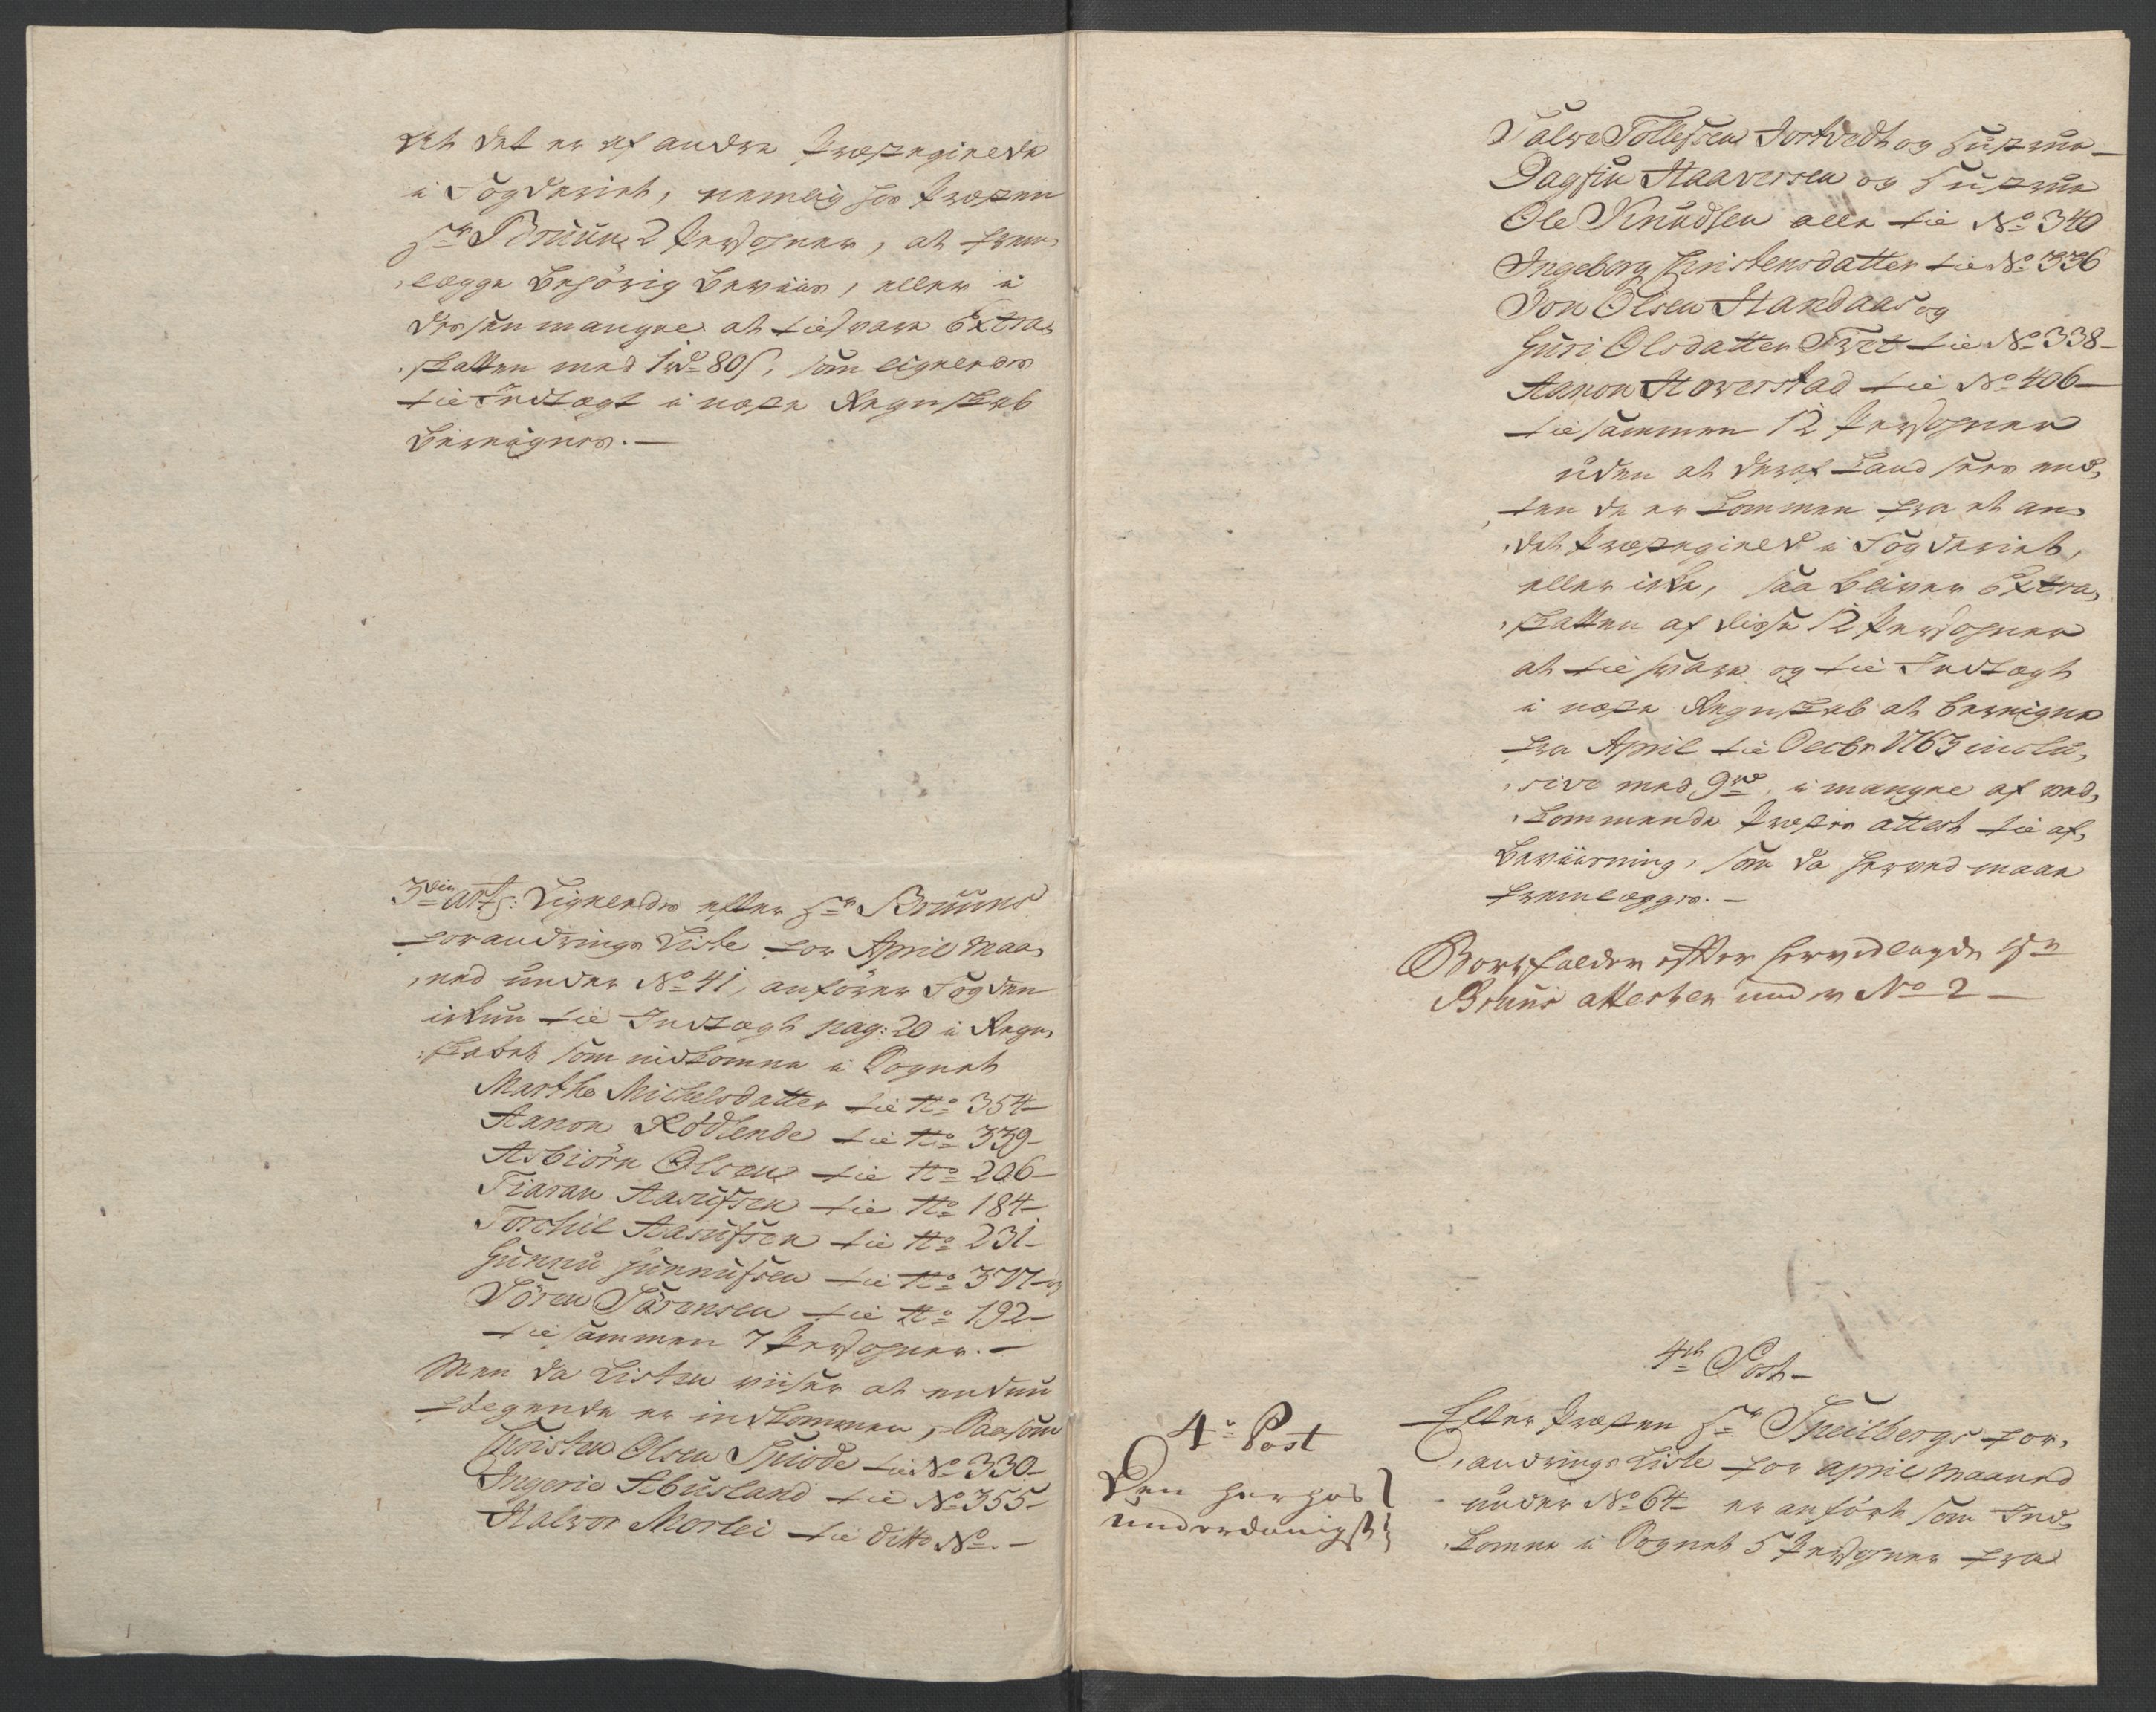 det det er af andre Præstegield
i Fogderiet, nemlig hos Præsten
Hr Bruun 2 Personer, at frem-
lægge behörig beviis, eller i
dessen mangel at tilsvare Extra-
skatten med 1rd 80s, som ligeledes
til Indtægt i næste Regnskab
beregnes. —
3die art: Ligeledes efter Hr Bruuns
forandrings Liste for April Maa-
ned under No 41, anförer Fogden
ikun til Indtægt pag: 20 i Regn-
skabet som indkomne i Sognet
Marthe Michelsdatter til No 354 —
Aanon Rödlende til No 339 —
Asbiörn Olsen til No 206 —
Tiaran Aasufsen til No 184 —
Torchil Aasufsen til No 231 —
Gunnu Gunnufsen til No 377 — og
Sören Sörensen til No 192 —
tilsammen 7 Personer. —
Men da Listen viiser at endnu
fölgende er indkommen, Saasom
Christen Olsen Spiode til No 330 —
Ingerie Abusland til No 355 —
Halvor Morlei til ditto No. —
Salve Tollefsen Jortvedt og Hustrue —
Dagfin Haaversen og Hustrue
Ole Knudsen alle til No 340
Ingeborg Christensdatter til No 336
Jon Olsen Handaas og
Guri Olsdatter Tvet til No 338 —
Aanon Haverstad til No 406 —
tilsammen 12 Personer
uden at deraf kand sees end-
ten de er kommen fra et an-
det Præstegield i Fogderiet,
eller ikke, saa bliver Extra-
skatten af disse 12 Personer
at tilsvare og til Indtægt
i næste Regnskab at beregne
fra April til Decbr 1763 inclu-
sive med 9rd, i mangel af ved-
kommende Præstes attest til af-
beviisning, som da herved maae
fremlægges. —
Bortfalder efter herved lagde Hr
Bruns attester under No 2 —
4de Post —
4e Post
Den herhos
underdanigst
Efter Præsten Hr Speilbergs for-
andrings Liste for april Maaned
under No 64 er anfört som Ind-
komne i Sognet 5 Personer fra